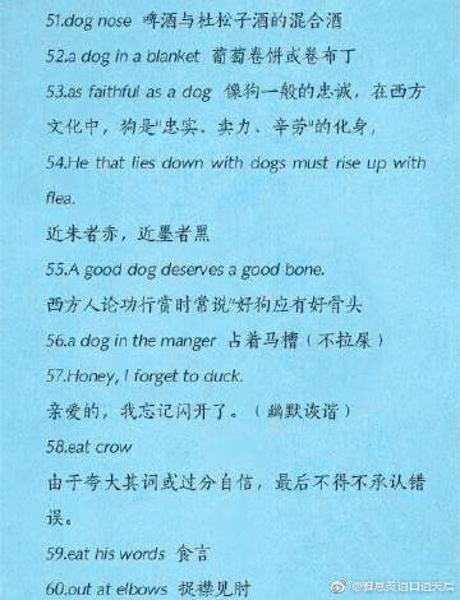 51.dog nose 啤酒与杜松子酒的混合酒
52.a dog in a blanket 葡萄卷饼或卷布丁
53.as faithful as a dog 像狗一般的忠诚，在西方
文化中，狗是"忠实、卖力、辛劳"的化身，
54.He that lies down with dogs must rise up with
flea.
近朱者赤，近墨者黑
55.A good dog deserves a good bone.
西方人论功行赏时常说"好狗应有好骨头
56.a dog in the manger 占着马槽（不拉屎）
57.Honey, I forget to duck.
亲爱的，我忘记闪开了。（幽默诙谐）
58.eat crow
由于夸大其词或过分自信，最后不得不承认错
误。
59.eat his words 食言
60.out at elbows 捉襟见肘
@雅思英语口语天后